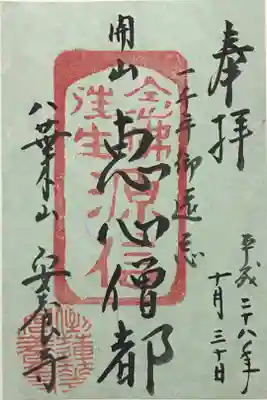 奉拝
平成二十八年
十月三十日
一千年御遠忌
開山
恵心僧都
往生
源信
八葉山
安養寺